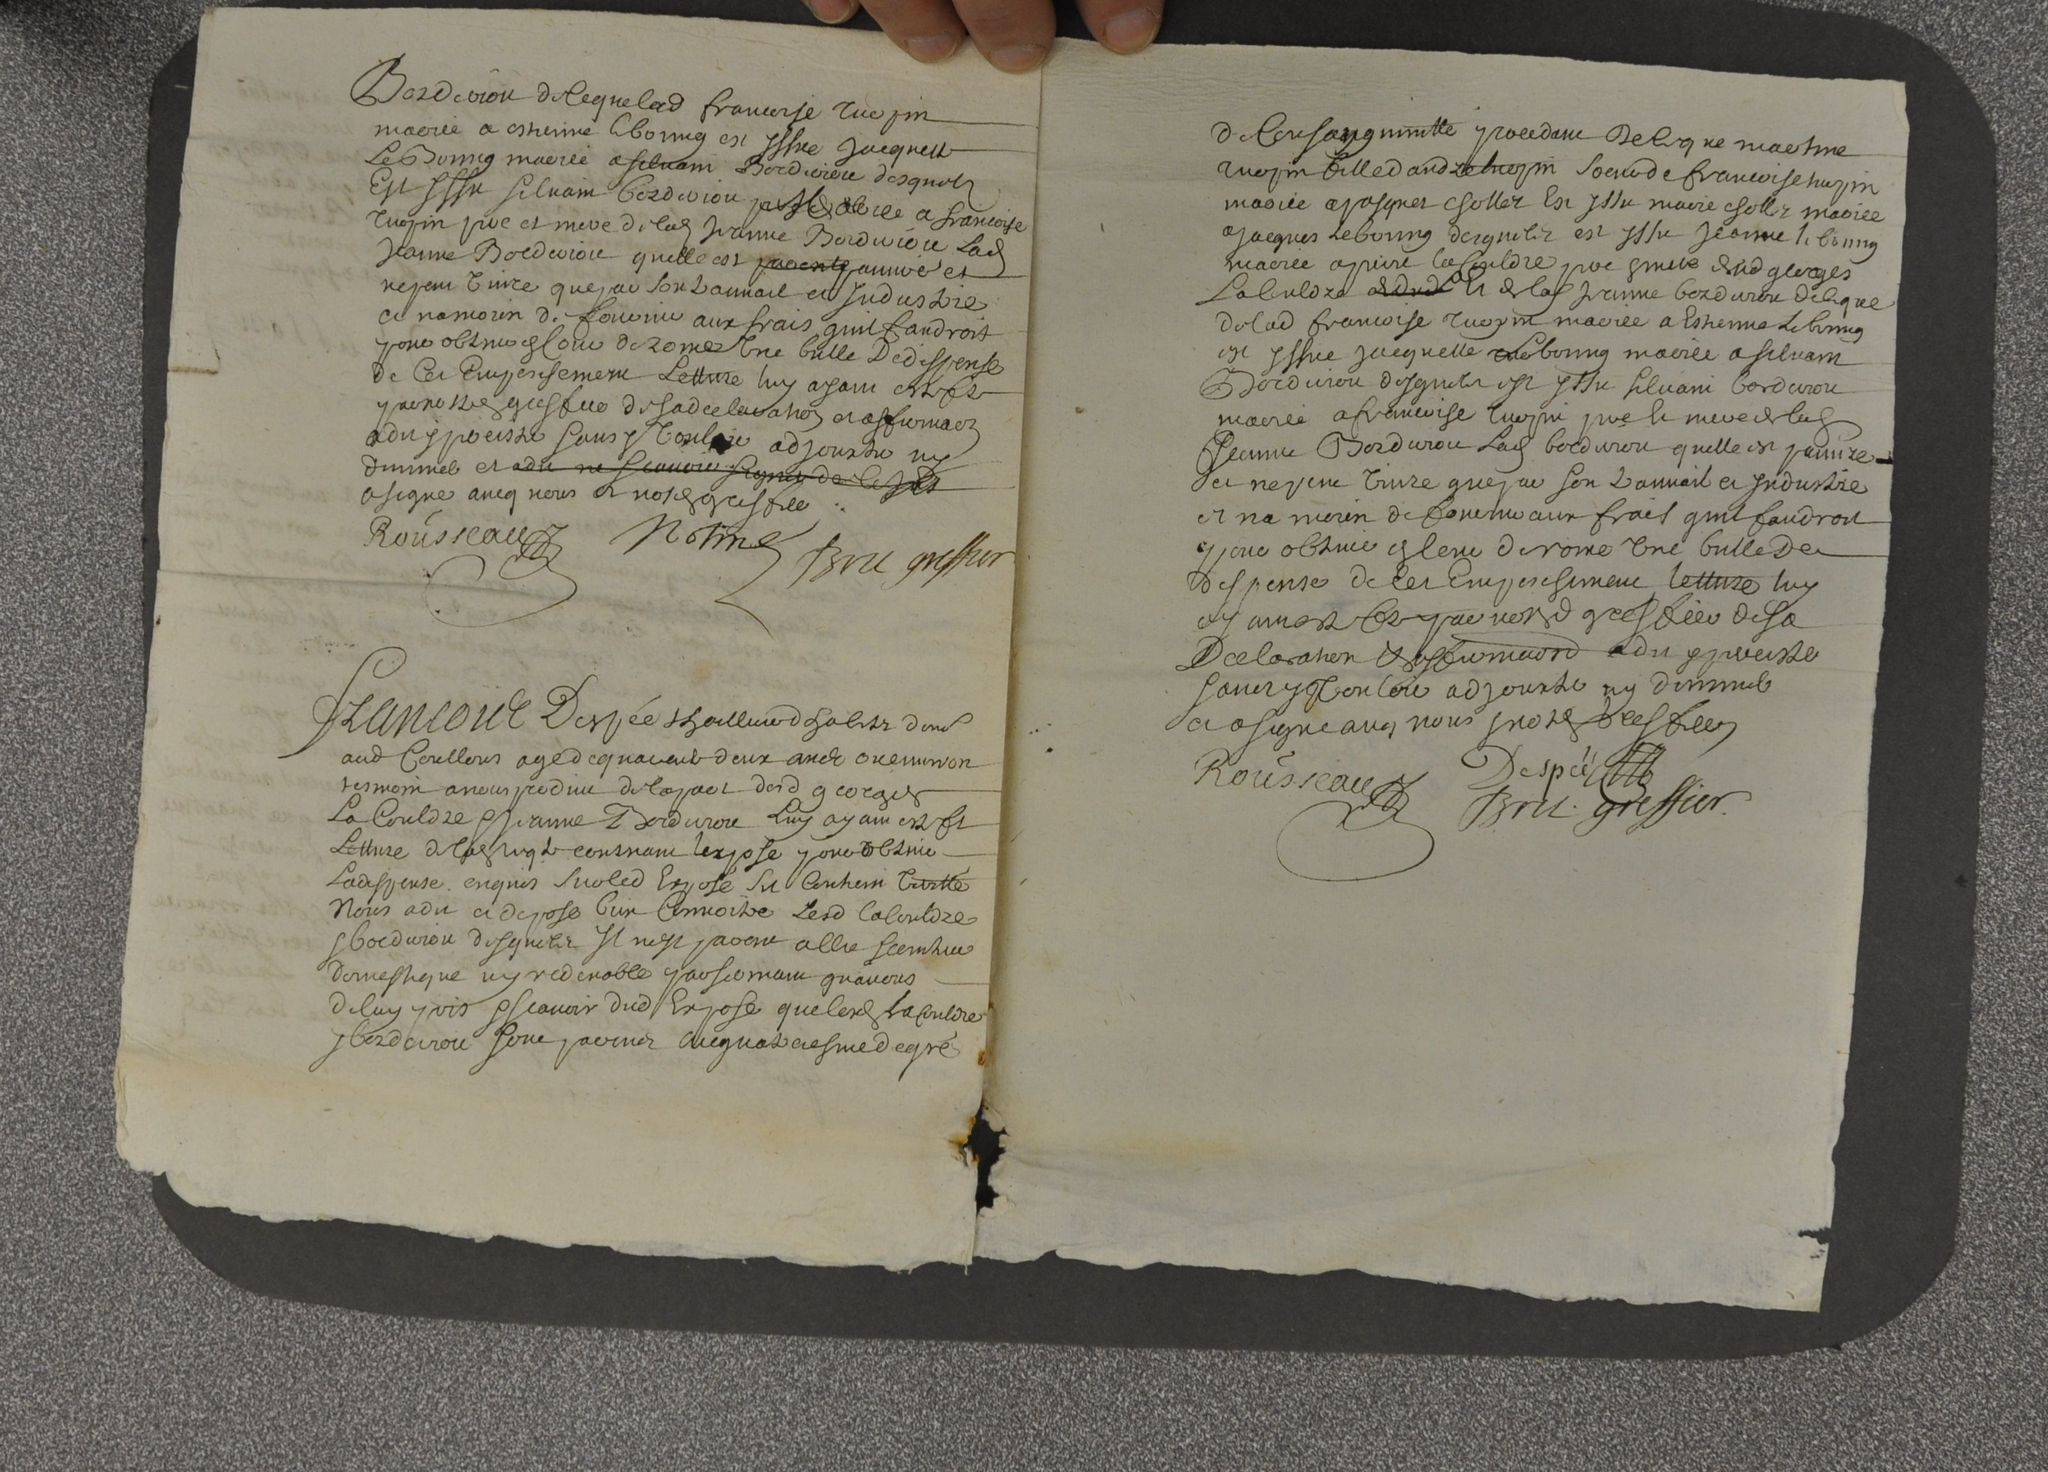 Borduriou de lequelad francoise turpin
mariée a estienne lebourg est yssue Jacquette
Le Bourg mariée a silvain Borduriou desquels
Est yssu silvain borduriou mariée a francoise
turpin pere et mere de lad Jeanne Borduriou Lad
Jeanne Borduriou quelle est pauvre et
ne peut vivre que par son travail et Industrie
et na moien de fournir aux frais quil faudroit
pour obtenir en cour de rome Une bulle Dedispense
de Cet Empeschement Lecture luy ayant esté fte
par nostre greffier de sa declaration et affirmaon
a dit y persister sans y vouloir adjouster ny
diminuer et
a signe avecq nous et nostre greffier
Rousseau
Bru greffier
francois Despée thailleur d habitz dem
aud age de quarante deux ans ou environ
tesmoin a nous produit de la part desd georges
La Couldre & Jeanne Borduriou Luy ayant esté ft
Lecture de lad reqte contenant lexposé pour obtenir
La dispense enquis sur led Exposé sil contient veritté
Nous a dit et deposé bien Connoistre Lesd lacouldre
& borduriou desquels Il nest parent allié serviteur
domestique ny redevable par serment quavons
de luy pris & scavoir dud Exposé que lesd Lacouldre
& borduriou sont parens au quatriesme degré
de Consanguinitté procedant De ce que martine
turpin fille dandré turpin soeur de francoise turpin
mariée a jacques Collet Est yssu marie Collet mariée
a jacques Lebourg desquels est yssu Jeanne lebourg
mariée a pierre lacouldre pere & mere dud georges
Lacouldre Et de lad Jeanne borduriou de ce que
de lad francoise turpin mariée a Estienne Lebourg
est yssue Jacquette Lebourg mariée a silvain
Borduriou desquels est yssu silvain borduriou
mariée a francoise turpin pere & mere de lad
Jeanne Borduriou Lad borduriou quelle est pauvre
et ne peut vivre que par son travail et Industrie
et na moien de fournir aux frais quil faudroit
pour obtenir en cour de rome Une bulle De
dispense de Cet Empeschement lecture luy
ayant esté fte par nostred greffier de sa
Declaration & affirmaon a dit y persister
sans y Vouloir adjouster ny diminuer
et a signe avecq nous & nostre greffier
Rousseau Despée
Bru greffier